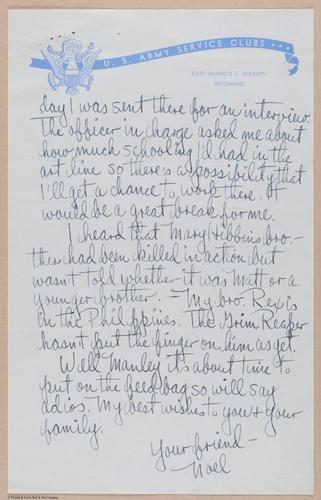 U. S. ARMY SERVICE CLUBS
FORT FRANCIS E. WARREN
WYOMING
day I was sent there for an interview.
The officer in charge asked me about
how much schooling I'd had in the
art line so there's a possibility that
I'll get a chance to work there. It
would be a great break for me.
I heard that Mary Hibbins bro.-
ther had been killed in action but
wasn't told whether it was Matt or a
younger brother. - My bro. Rex is
in the Philippines. The Grim Reaper
hasn't put the finger on him as yet.
Well Manley it's about time to
put on the feed bag so will say
adios. My best wishes to you & your
family.
Your friend -
Noel